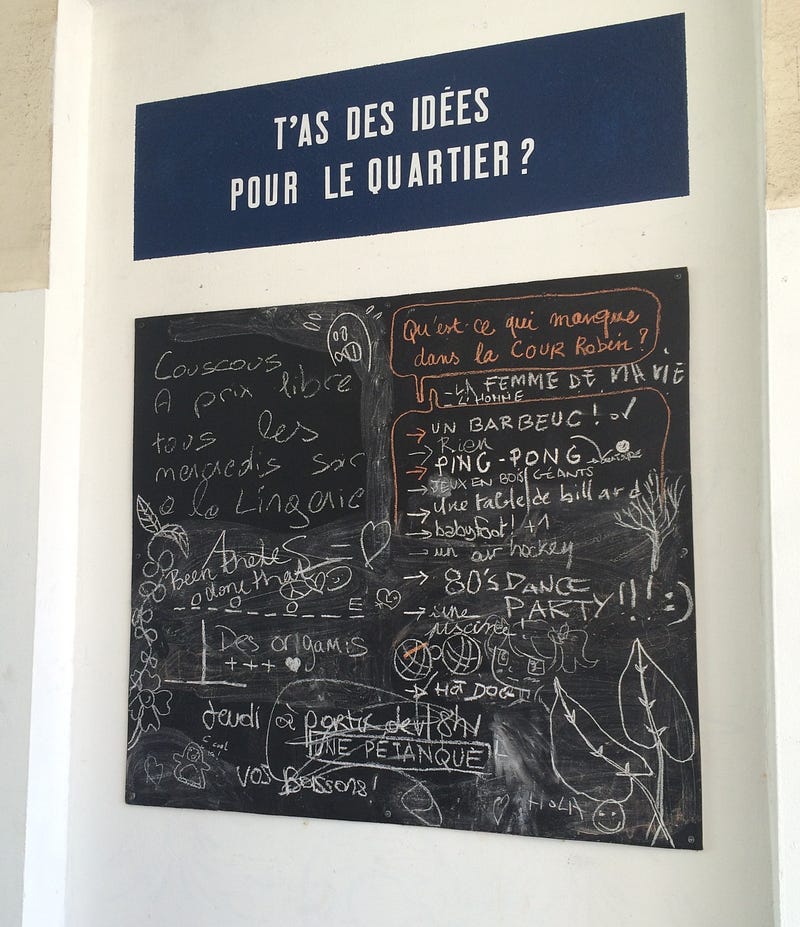 T'AS DES IDÉES
POUR LE QUARTIER ?
Couscous
A prix libre
tous les
mercredis soir
a la Lingerie
Been there
done that
E
Des origamis
+++
Jeudi à partir de 18h
UNE PÉTANQUE
VOS Boissons!
C cool
Qu'est-ce qui manque
dans la COUR Robin ?
- LA FEMME DE MA VIE
- L'HOMME
→ UN BARBEUC ! ✓
→ Rien
→ PING-PONG
→ JEUX EN BOIS GÉANTS
→ une table de billard
→ babyfoot! +1
→ un air hockey
→ 80'S DANCE
PARTY!!! :)
→ une
piscine!
→ HOT DOG
HOLA